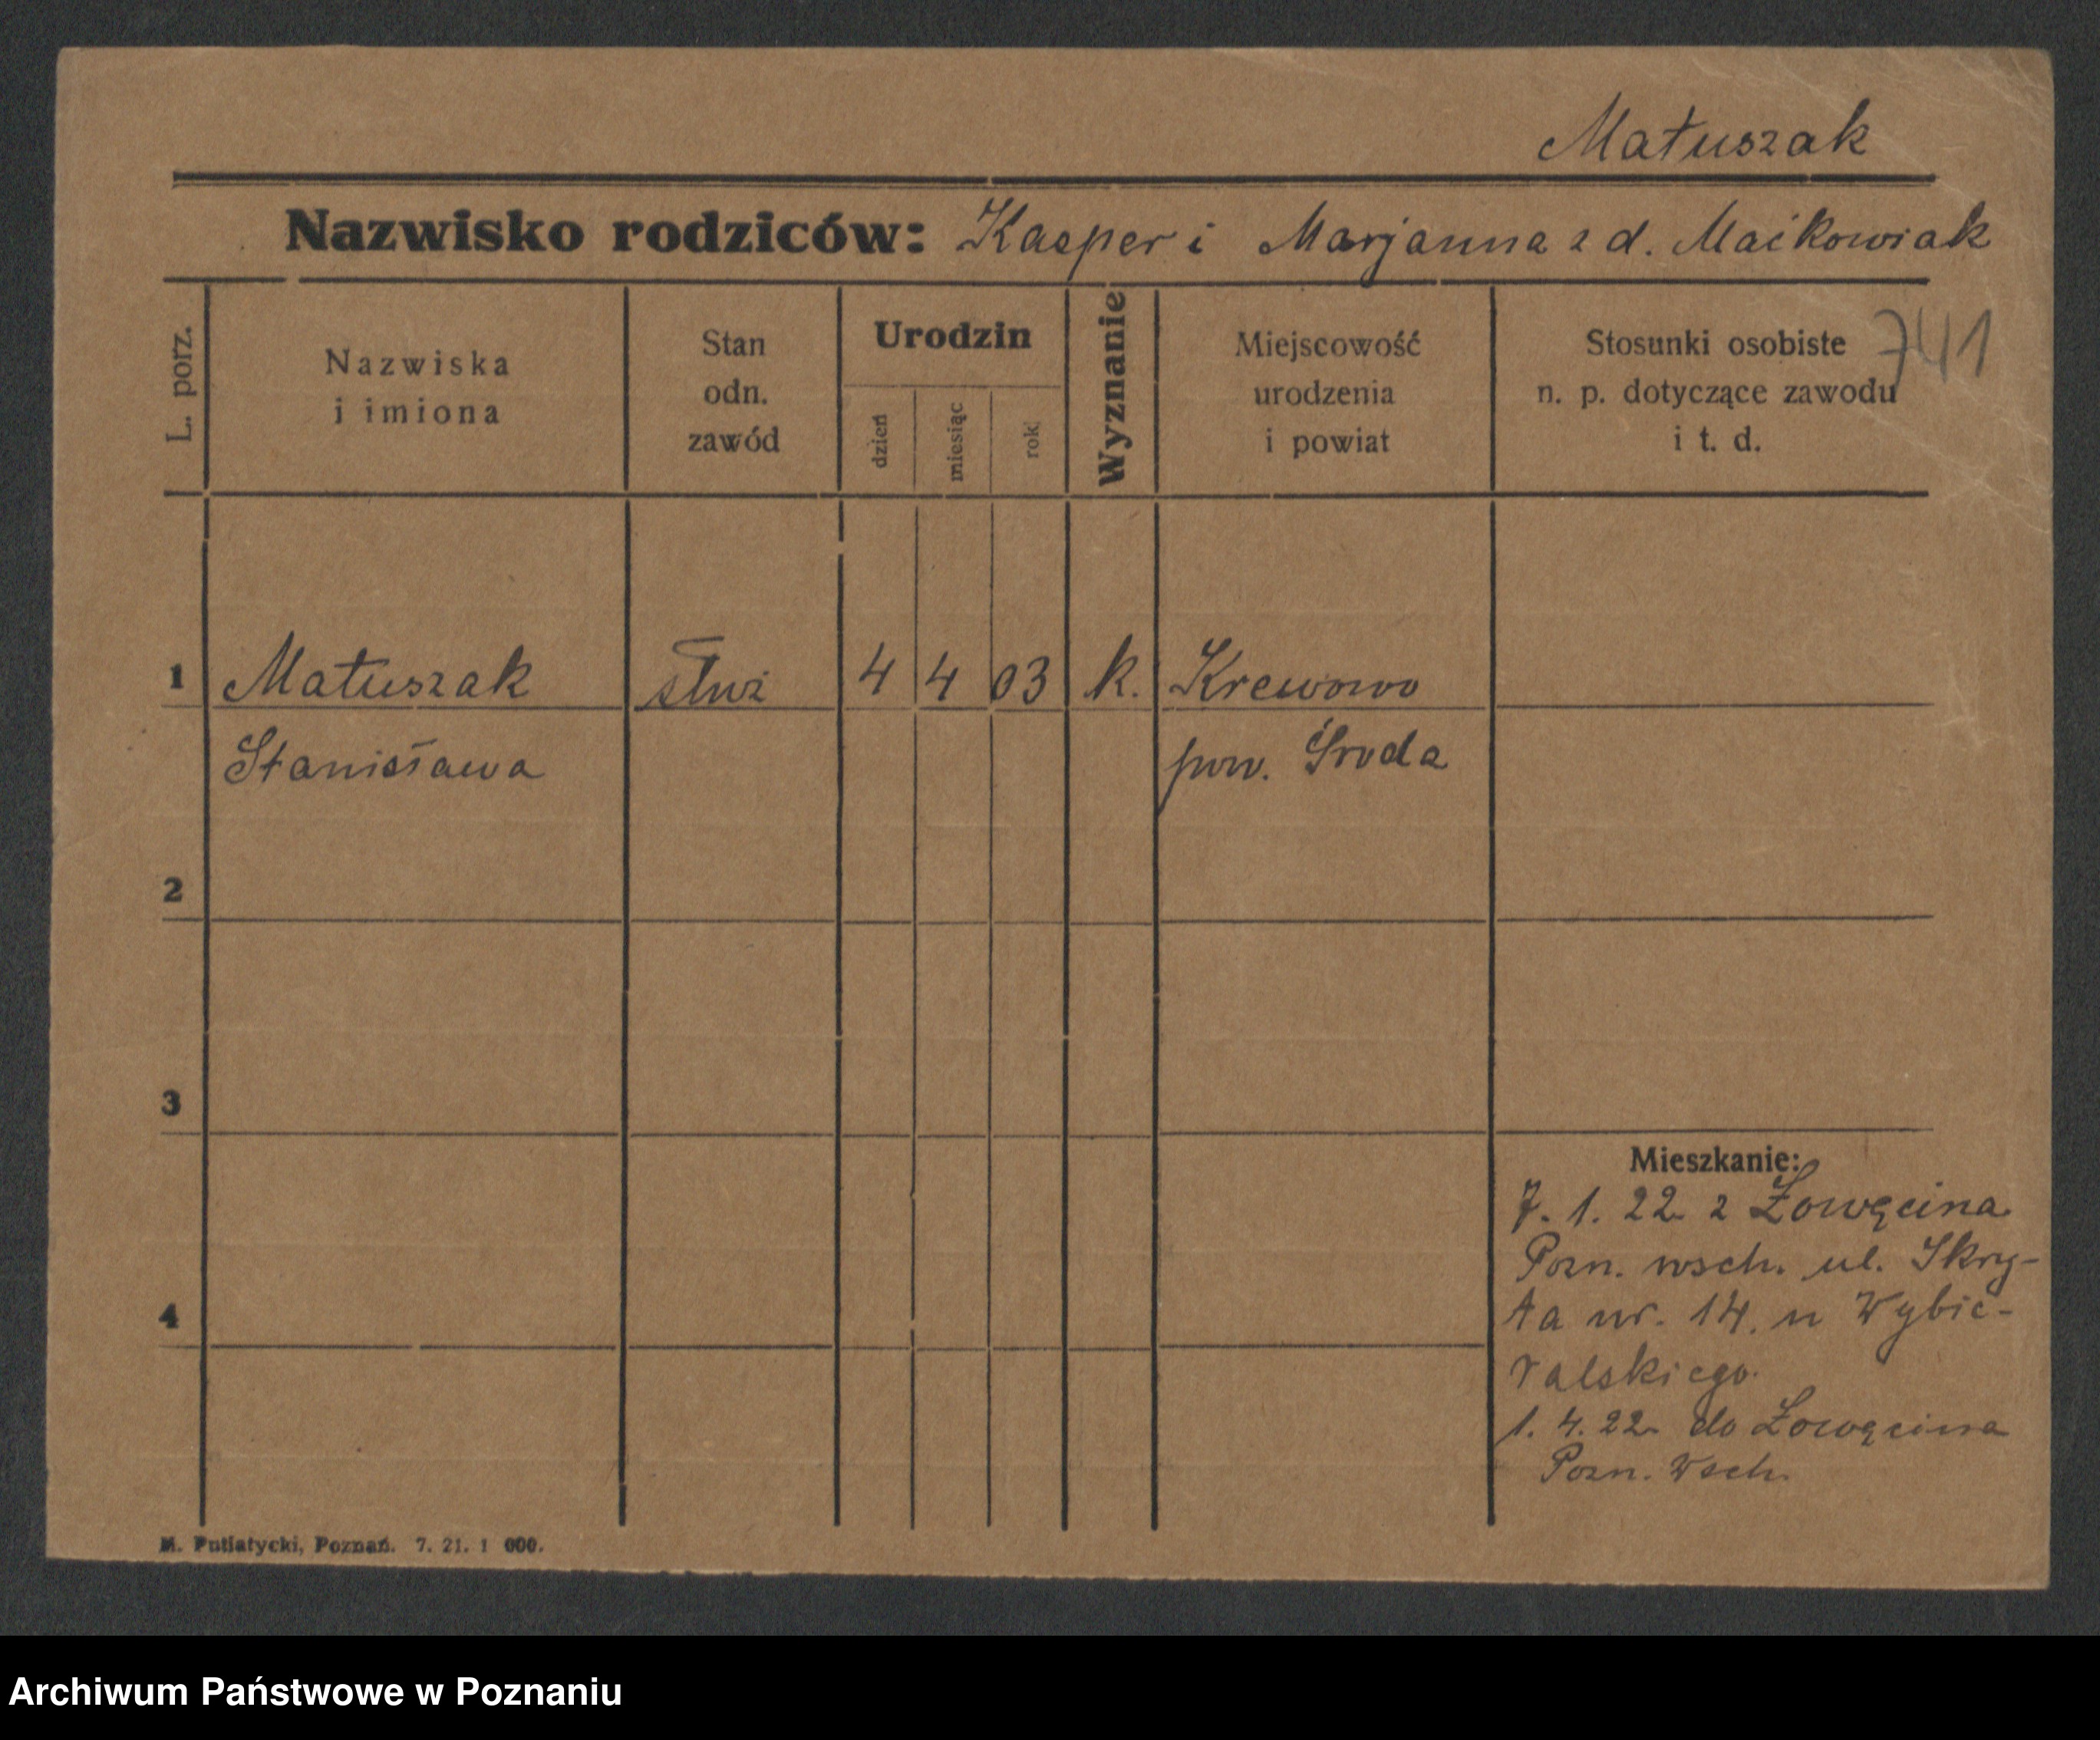 Matuszak
Nazwisko rodziców: Kasper i Marjanna z d. Maćkowiak
741
L. porz.
Nazwiska
i imiona
Stan
odn.
zawód
Urodzin
dzień
miesiąc
rok
Wyznanie
Miejscowość
urodzenia
i powiat
Stosunki osobiste
n. p. dotyczące zawodu
i t. d.
1 Matuszak służ 4 4 03 k. Krerowo
Stanisława pow. Środa
2
3
4
Mieszkanie:
7. 1. 22 z Żowęcina
Pozn. wsch. ul. Skry-
ta nr. 14. u Wybie-
ralskiego.
1. 4. 22 do Żowęcina
Pozn. Wsch.
M. Putiatycki, Poznań. 7. 21. 1 000.
Archiwum Państwowe w Poznaniu